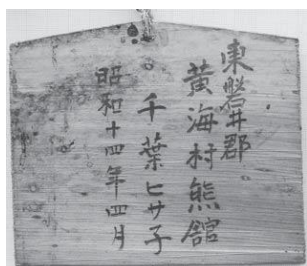 東磐井郡
黄海村熊舘
千葉ヒサ子
昭和十四年四月